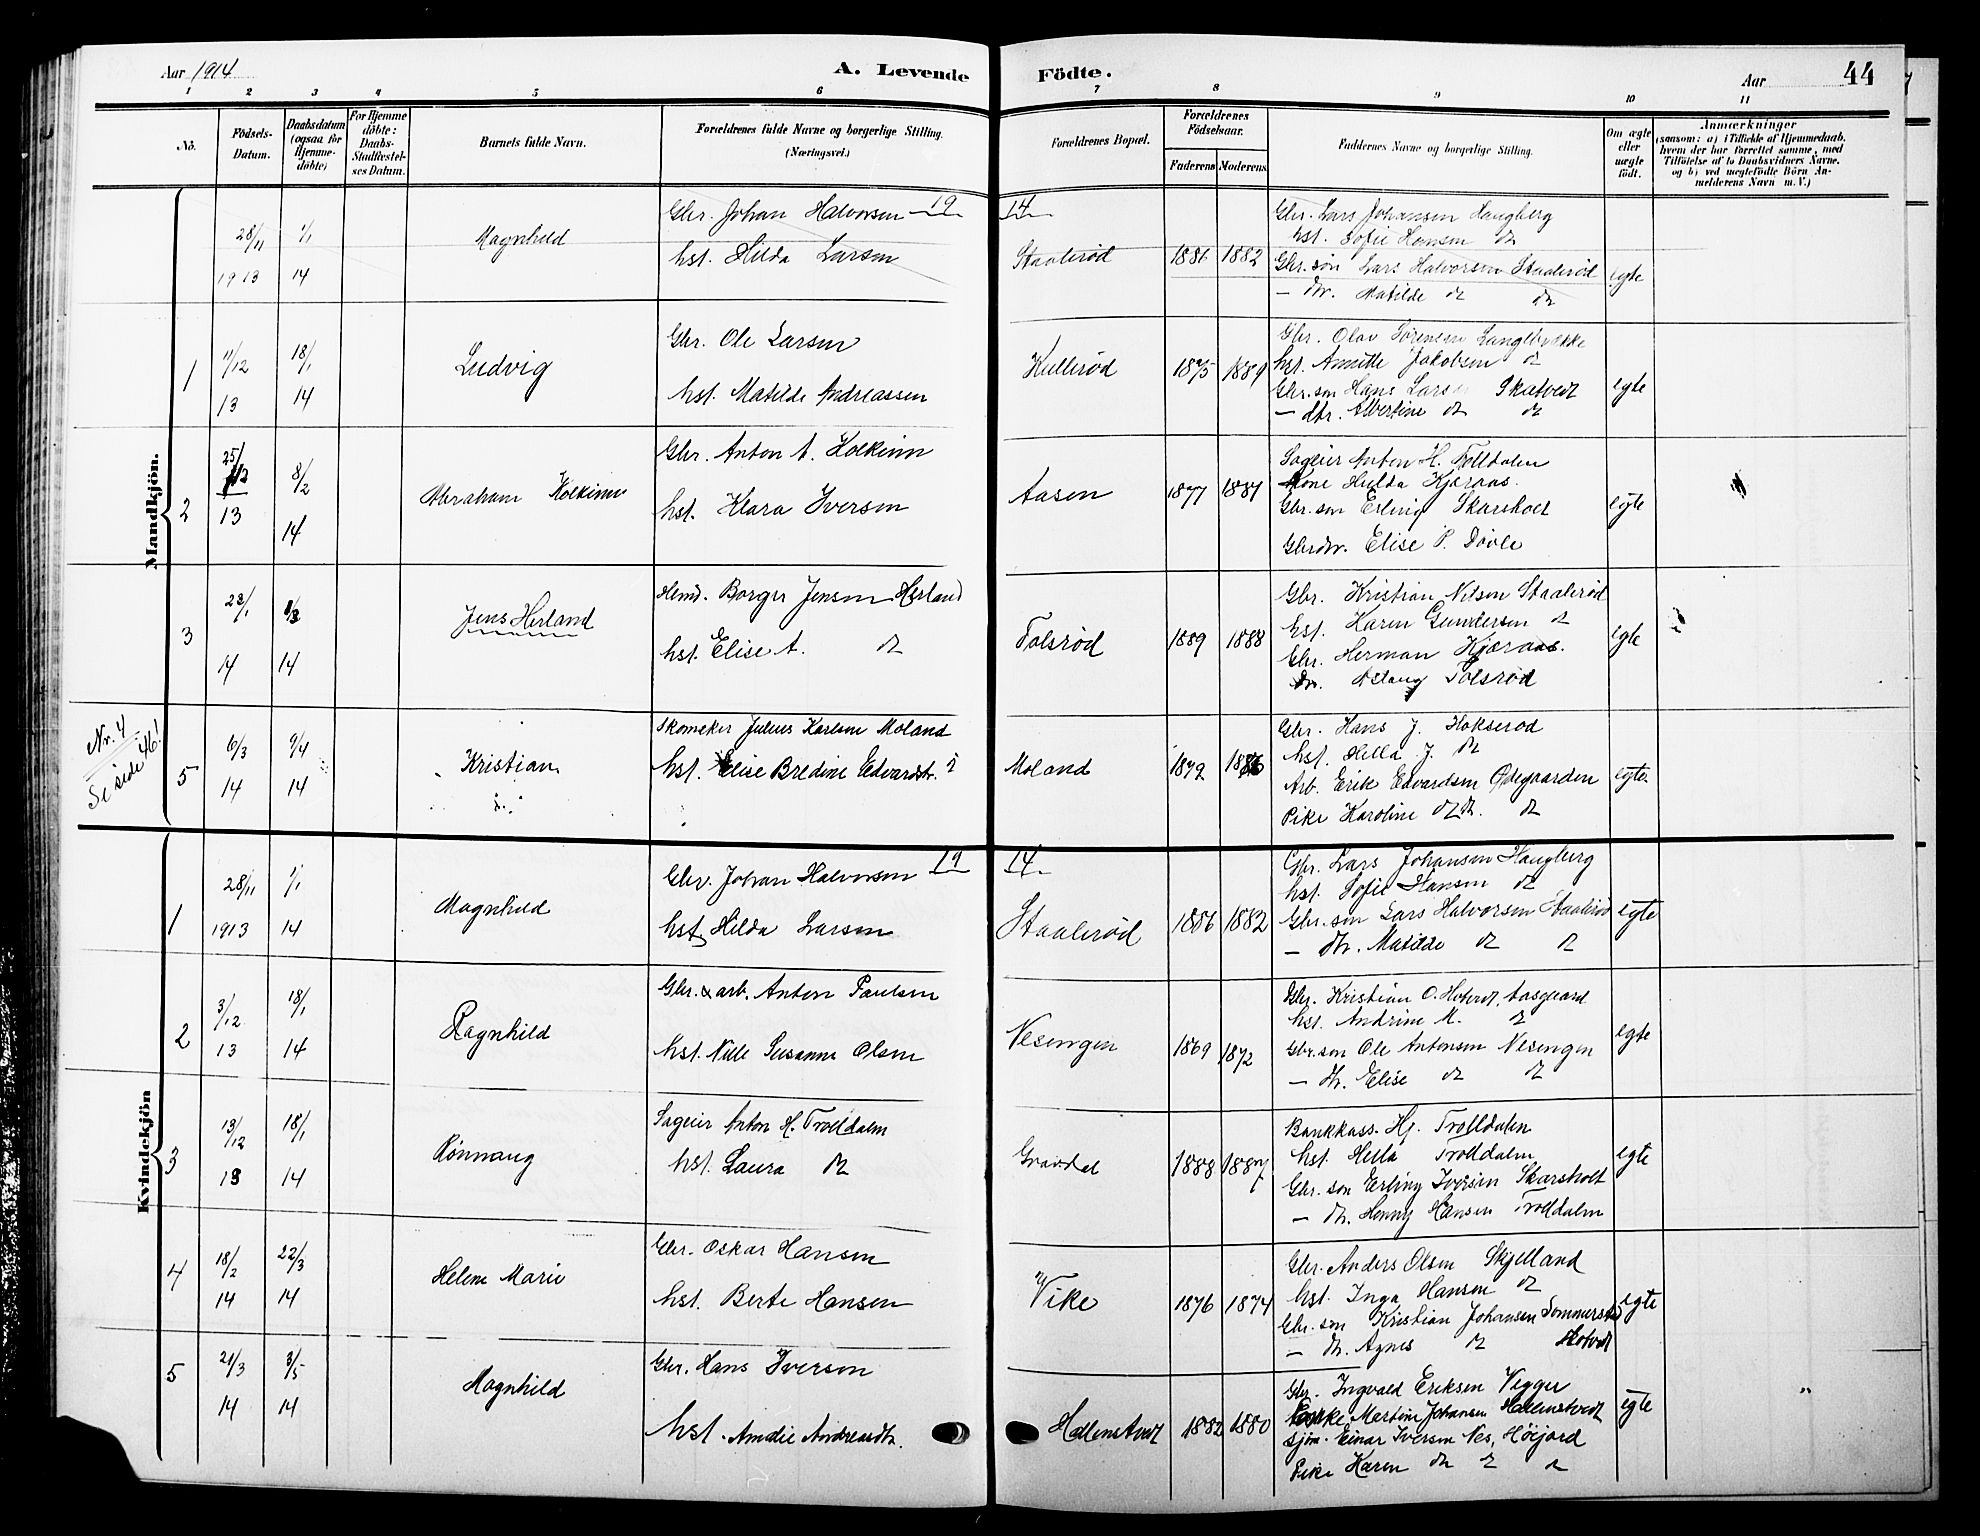 Aar 1914
A. Levende Födte.
Aar
44
1 2 3 4 5 6 7 8 9 10 11
No.
Födsels-
Datum.
Daabsdatum
(ogsaa for
Hjemme-
döbte)
For Hjemme
döbte:
Daabs-
Stadfæstel-
ses Datum.
Barnets fulde Navn.
Forældrenes fulde Navne og borgerlige Stilling.
(Næringsvei.)
Forældrenes Bopæl.
Forældrenes
Födselsaar.
Faderens
Moderens
Faddernes Navne og borgerlige Stilling.
Om ægte
eller
uægte
födt.
Anmærkninger
(saasom: a) i Tilfælde af Hjemmedaab.
hvem der har forrettet samme, med
Tilföielse af to Daabsvidners Navne.
og b) ved uægtefödte Börn An-
melderens Navn m. V.)
Mandkjön.
28/11 1913
1/1 14
Magnhild
Gbr. Johan Halvorsen
hst. Hilda Larsen
19 14
Staalerød
1886 1882
Gbr. Lars Johansen Haugberg
hst. Sofie Hansen do
Gbr. søn Lars Halvorsen Staalerød
— dtr. Matilde do do
egte
1
11/12 13
18/1 14
Ludvig
Gbr. Ole Larsen
hst. Matilde Andreassen
Kullerød
1875 1889
Gbr. Olav Sørensen Langebrække
hst. Annette Jakobsen do
Gbr. søn Hans Larsen Skatvedt
— dtr. Albertine do do
egte
2
25/12 13
8/2 14
Abraham Kolkinn
Gbr. Anton A. Kolkinn
hst. Klara Iversen
Aasen
1877 1881
Sageier Anton H. Trolldalen
Kone Hulda Kjæraas.
Gbr. søn Erling Skarsholt
Gbrdtr. Elise P. Døvle
egte
3
23/1 14
1/3 14
Jens Herland
Hmd. Borger Jensen Herland
hst. Elise A. do
Tolsrød
1889 1888
Gbr. Kristian Nilsen Staalerød
hst. Karen Gundersen do
Gbr. Herman Kjæraas.
Dtr. Aslaug Tolsrød
egte
Nr. 4
Se side 46!
5
6/3 14
9/4 14
Kristian
Skomaker Julius Karlsen Moland
hst. Elise Bredine Edvardsdtr.
Moland
1879 1886
Gbr. Hans J. Hokserød
hst. Hella J. do
Arb. Erik Edvardsen Ødegaarden
Pike Karoline do do
egte
Kvindekjön
1
28/11 1913
1/1 14
Magnhild
Gbr. Johan Halvorsen
hst. Hilda Larsen
19 14
Staalerød
1886 1882
Gbr. Lars Johansen Haugberg
hst. Sofie Hansen do
Gbr. søn Lars Halvorsen Staalerød
— dtr. Matilde do do
egte
2
3/12 13
18/1 14
Ragnhild
Gbr. & arb. Anton Paulsen
hst. Nille Susanne Olsen
Nesengen
1869 1872
Gbr. Kristian O. Hotvedt, Aasgaard
hst. Andrine M. do
Gbr. søn Ole Antonsen Nesengen
— dtr. Elise do do
egte
3
13/12 13
18/1 14
Rønnaug
Sageier Anton H. Trolldalen
hst. Laura do
Gravdal
1888 1887
Bankkass. Hj. Trolldalen
hst. Hella Trolldalen
Gbr. søn Erling Iversen Skarsholt
— dtr. Henny Hansen Trolldalen
egte
4
18/2 14
22/3 14
Helene Marie
Gbr. Oskar Hansen
hst. Berte Hansen
Vike
1876 1874
Gbr. Anders Olsen Skjelland
hst. Inga Hansen do
Gbr. søn Kristian Johansen Sommersted
— dtr. Agnes do Hotvedt
egte
5
21/3 14
3/5 14
Magnhild
Gbr. Hans Iversen
hst. Amalie Andreasdtr.
Hallenstvedt
1882 1880
Gbr. Ingvald Eriksen Vegger
Enke Martine Johansen Hallenstvedt
Sjøm. Einar Iversen Nes, Høijord
Pike Karen do do do
egte